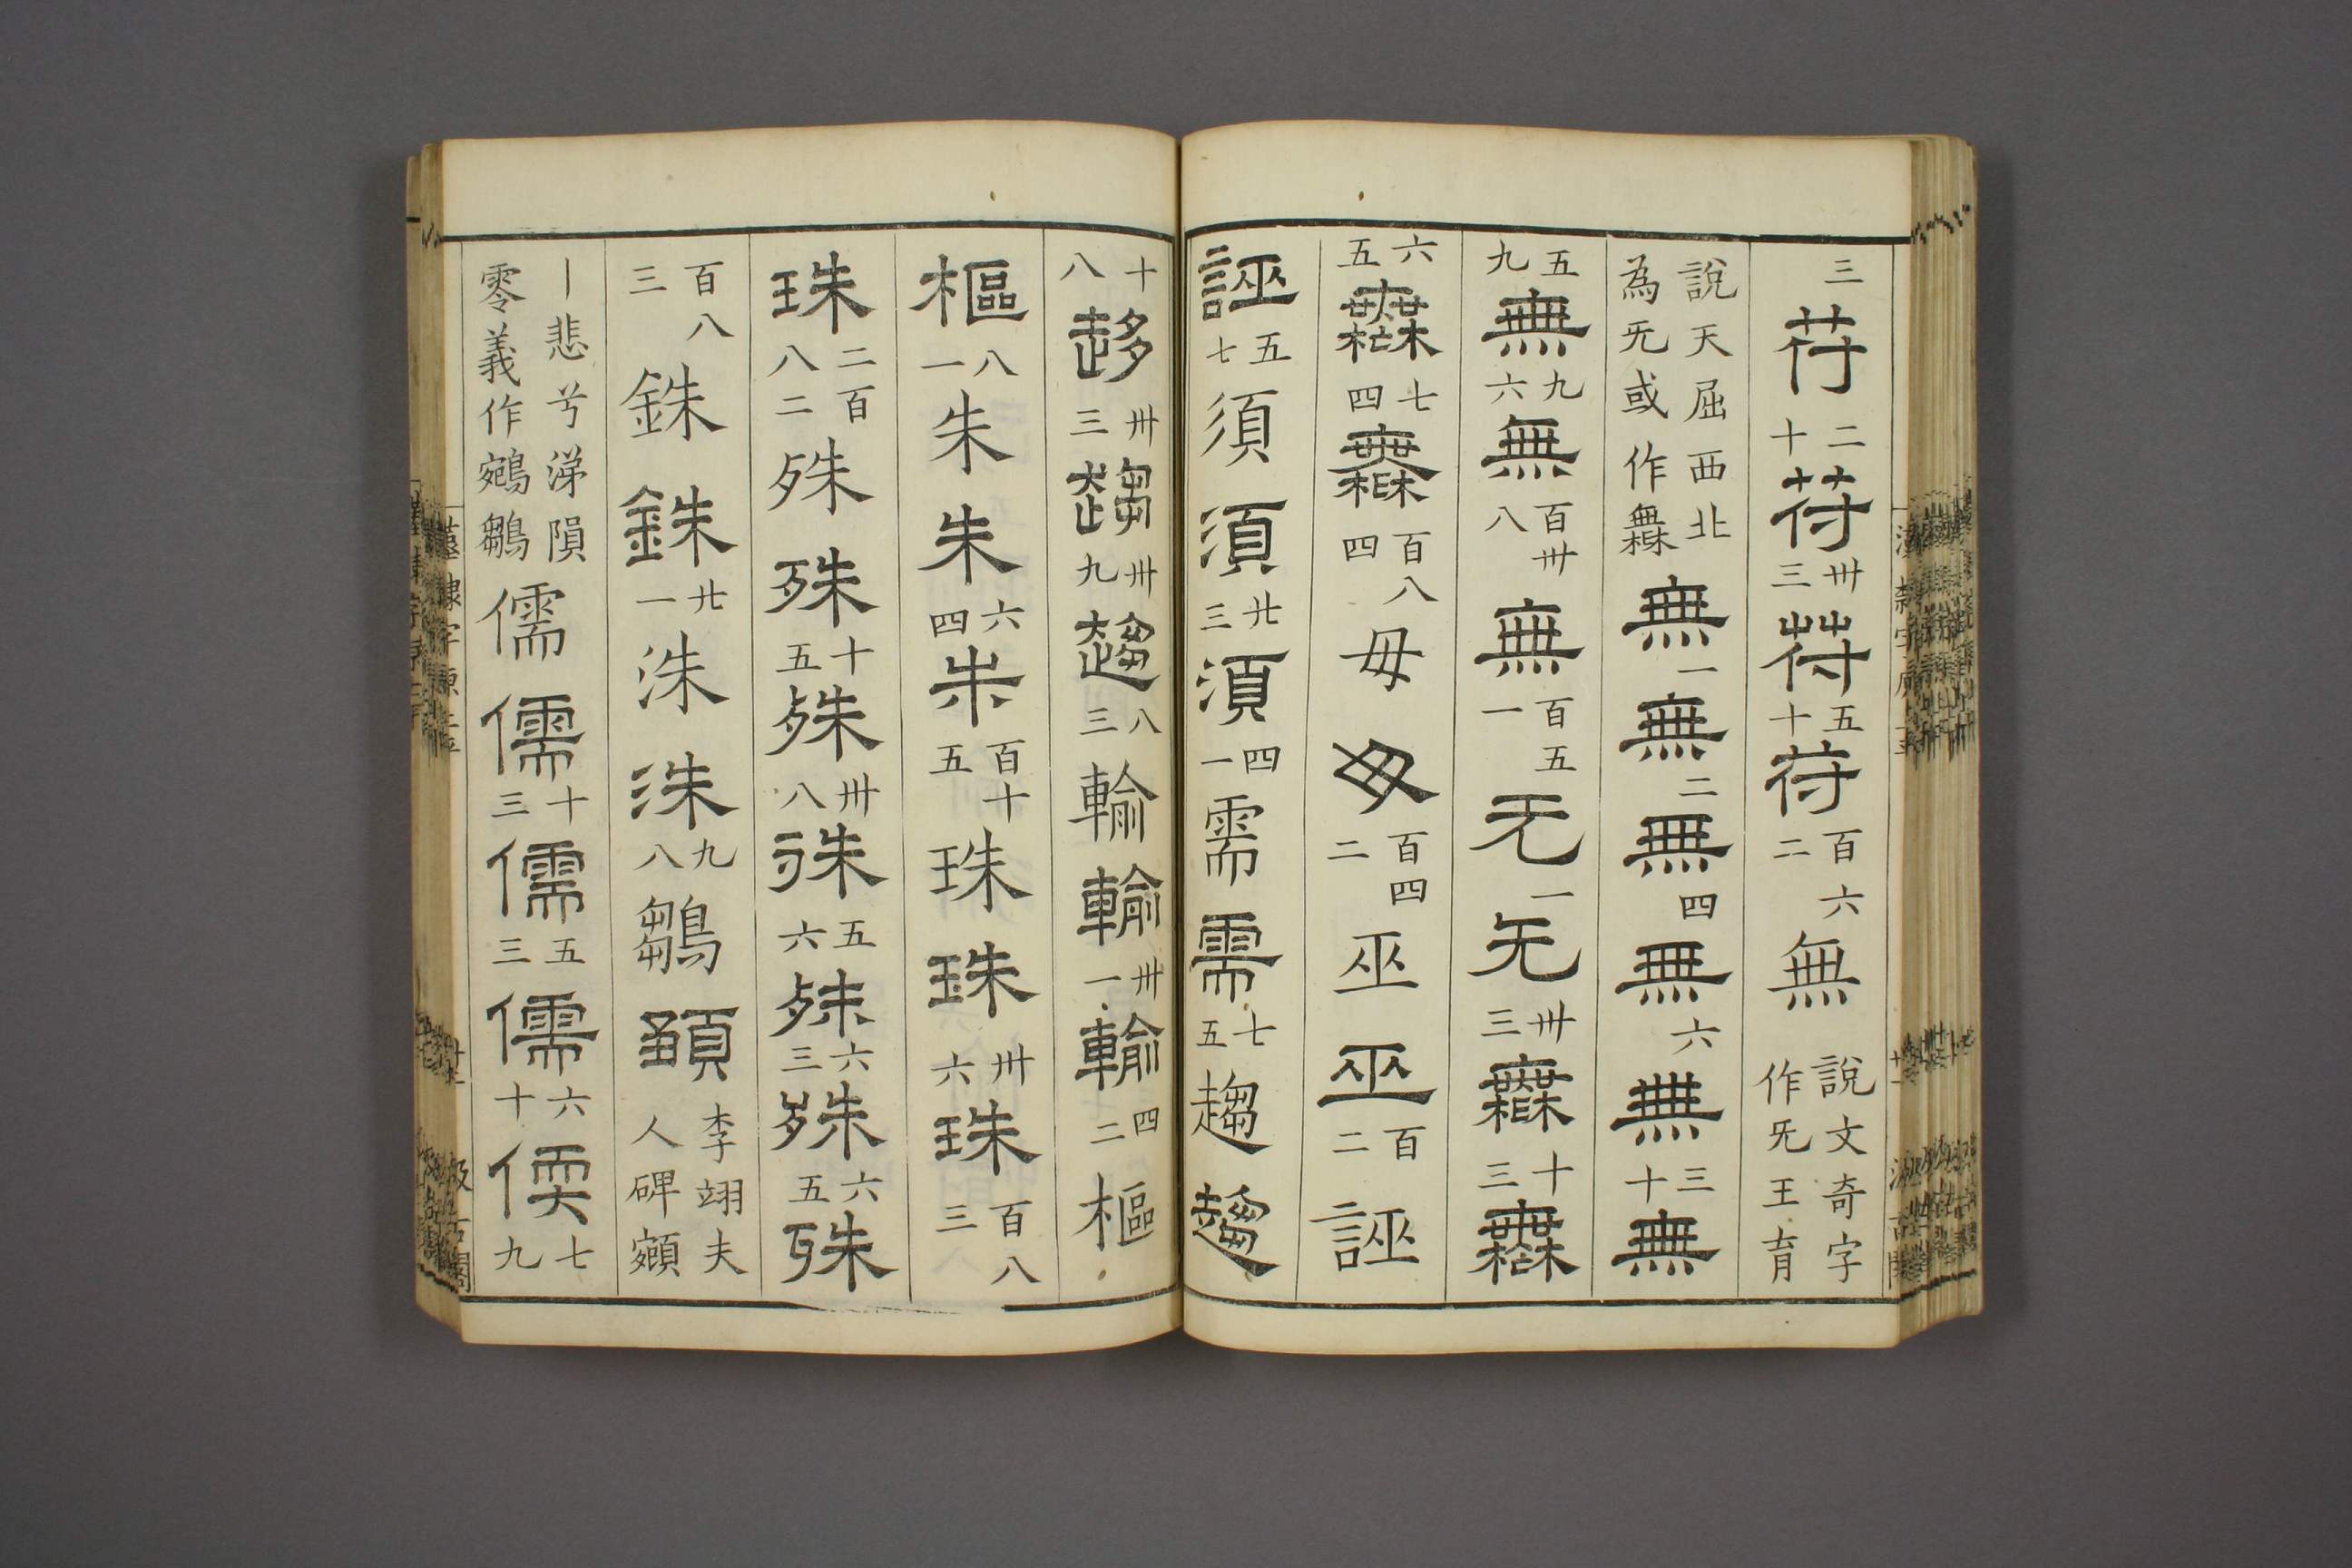 三苻二十苻卅三苻五十苻百六二無說文奇字作旡王育
說天屈西北為旡或作橆無一無二無四無六無三十無
五九無九六無百卅八無百五一无一无卅三橆十三橆
六五橆七四橆百八四毋毋百四二巫巫百二誣
誣五七須湏廿三湏四一需需七五趨趨
十八趍卅三趨卅九趨八三輸輸卅一輸四二樞
樞八一朱朱六四朱百十五珠珠卅六珠百八三
珠二百八二殊殊十五殊卅八殊五六殊六三殊六五殊
百八三銖銖廿一洙洙九八鶵李翊夫人碑
丨悲兮涕隕零義作鵷鶵儒儒十三儒五三儒六十儒七九